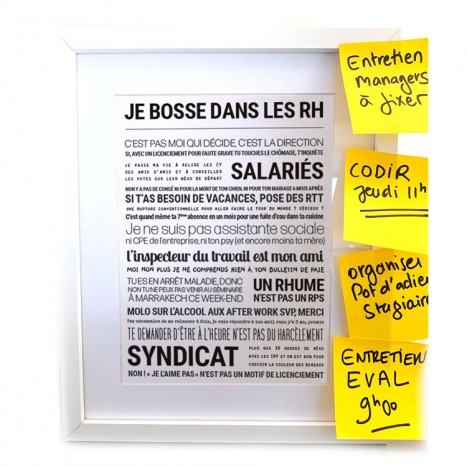 JE BOSSE DANS LES RH
C'EST PAS MOI QUI DÉCIDE, C'EST LA DIRECTION
SI, AVEC UN LICENCIEMENT POUR FAUTE GRAVE TU TOUCHES LE CHÔMAGE, T'INQUIÈTE
JE PASSE MA VIE À RELIRE LES CV
DES AMIS D'AMIS ET À CONSEILLER
LES POTES SUR LEUR NÉGO DE DÉPART
SALARIÉS
NON Y A PAS DE CONGÉ NI POUR LA MORT DE TON CHIEN, NI POUR TON MARIAGE 6 MOIS APRÈS
SI T'AS BESOIN DE VACANCES, POSE DES RTT
UNE RUPTURE CONVENTIONNELLE POUR ALLER FAIRE LE TOUR DU MONDE ? SÉRIEUX ?
C'est quand même ta 7ème absence en un mois pour une fuite d'eau dans ta cuisine
Je ne suis pas assistante sociale
ni CPE de l'entreprise, ni ton psy (et encore moins ta mère)
l'inspecteur du travail est mon ami
MOI NON PLUS JE NE COMPRENDS RIEN À TON BULLETIN DE PAIE
TU ES EN ARRÊT MALADIE, DONC
NON TU NE PEUX PAS VENIR AU SÉMINAIRE
À MARRAKECH CE WEEK-END
UN RHUME
N'EST PAS UN RPS
MOLO SUR L'ALCOOL AUX AFTER WORK SVP, MERCI
TE DEMANDER D'ÊTRE À L'HEURE N'EST PAS DU HARCÈLEMENT
SYNDICAT
PLUS QUE 30 HEURES DE NÉGO
AVEC LES IRP ET ON EST BON POUR
CHOISIR LA COULEUR DES BUREAUX
NON ! « JE L'AIME PAS » N'EST PAS UN MOTIF DE LICENCIEMENT
Entretien
managers
à fixer
CODIR
jeudi 11h
organiser
Pot d'adieu
Stagiaire
ENTRETIEN
EVAL
9h00